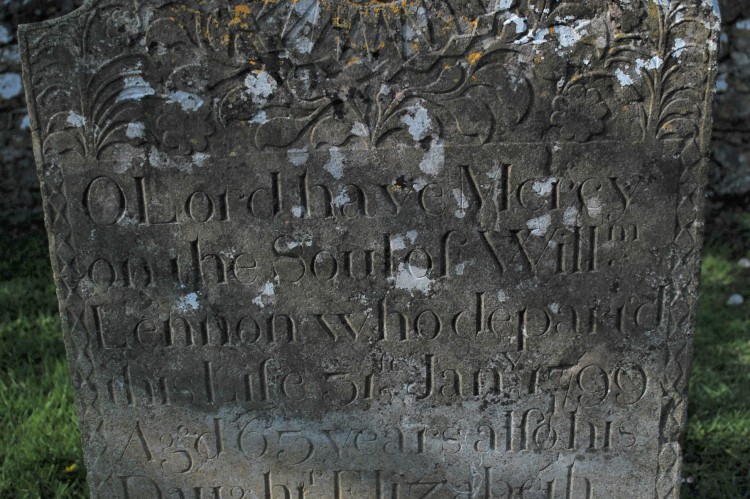 O Lord have Mercy
on the Soul of Will.m
Lennon who depart'd
this Life 31th Jan.y 1799
Aged 65 years also his
Daugh.r Elizabeth